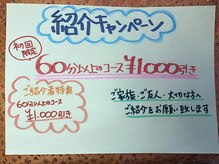 紹介キャンペーン
初回限定
60分以上のコース ¥1,000引き
ご紹介者特典
60分以上のコース
¥1,000引き
ご家族・ご友人・大切な方へ
ご紹介をお願い致します